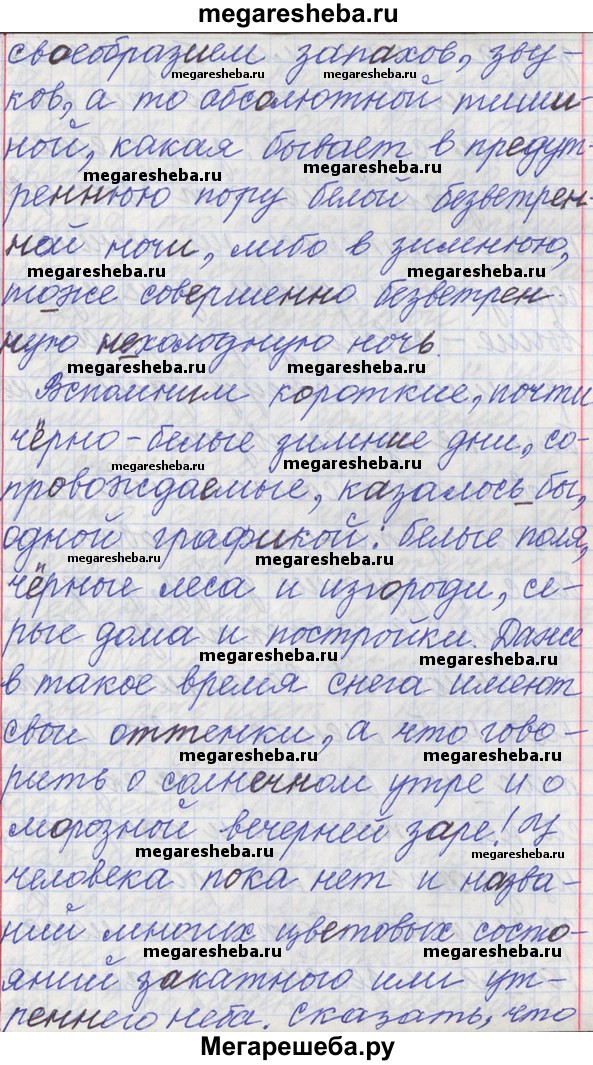 megaresheba.ru
своеобразием запахов, зву-
megaresheba.ru megaresheba.ru
ков, а то абсолютной тиши-
ной, какая бывает в предут-
megaresheba.ru megaresheba.ru
реннюю пору белой безветрен-
ной ночи, либо в зимнюю,
megaresheba.ru megaresheba.ru
тоже совершенно безветрен-
ную нехолодную ночь.
megaresheba.ru megaresheba.ru
Вспомним короткие, почти
чёрно-белые зимние дни, со-
megaresheba.ru megaresheba.ru
провождаемые, казалось бы,
одной графикой: белые поля,
megaresheba.ru megaresheba.ru
чёрные леса и изгороди, се-
рые дома и постройки. Даже
megaresheba.ru megaresheba.ru
в такое время снега имеют
свои оттенки, а что гово-
megaresheba.ru megaresheba.ru
рить о солнечном утре и о
морозной вечерней заре! У
megaresheba.ru megaresheba.ru
человека пока нет и назва-
ний многих цветовых состо-
megaresheba.ru megaresheba.ru
яний закатного или ут-
реннего неба. Сказать, что
Мегарешеба.ру